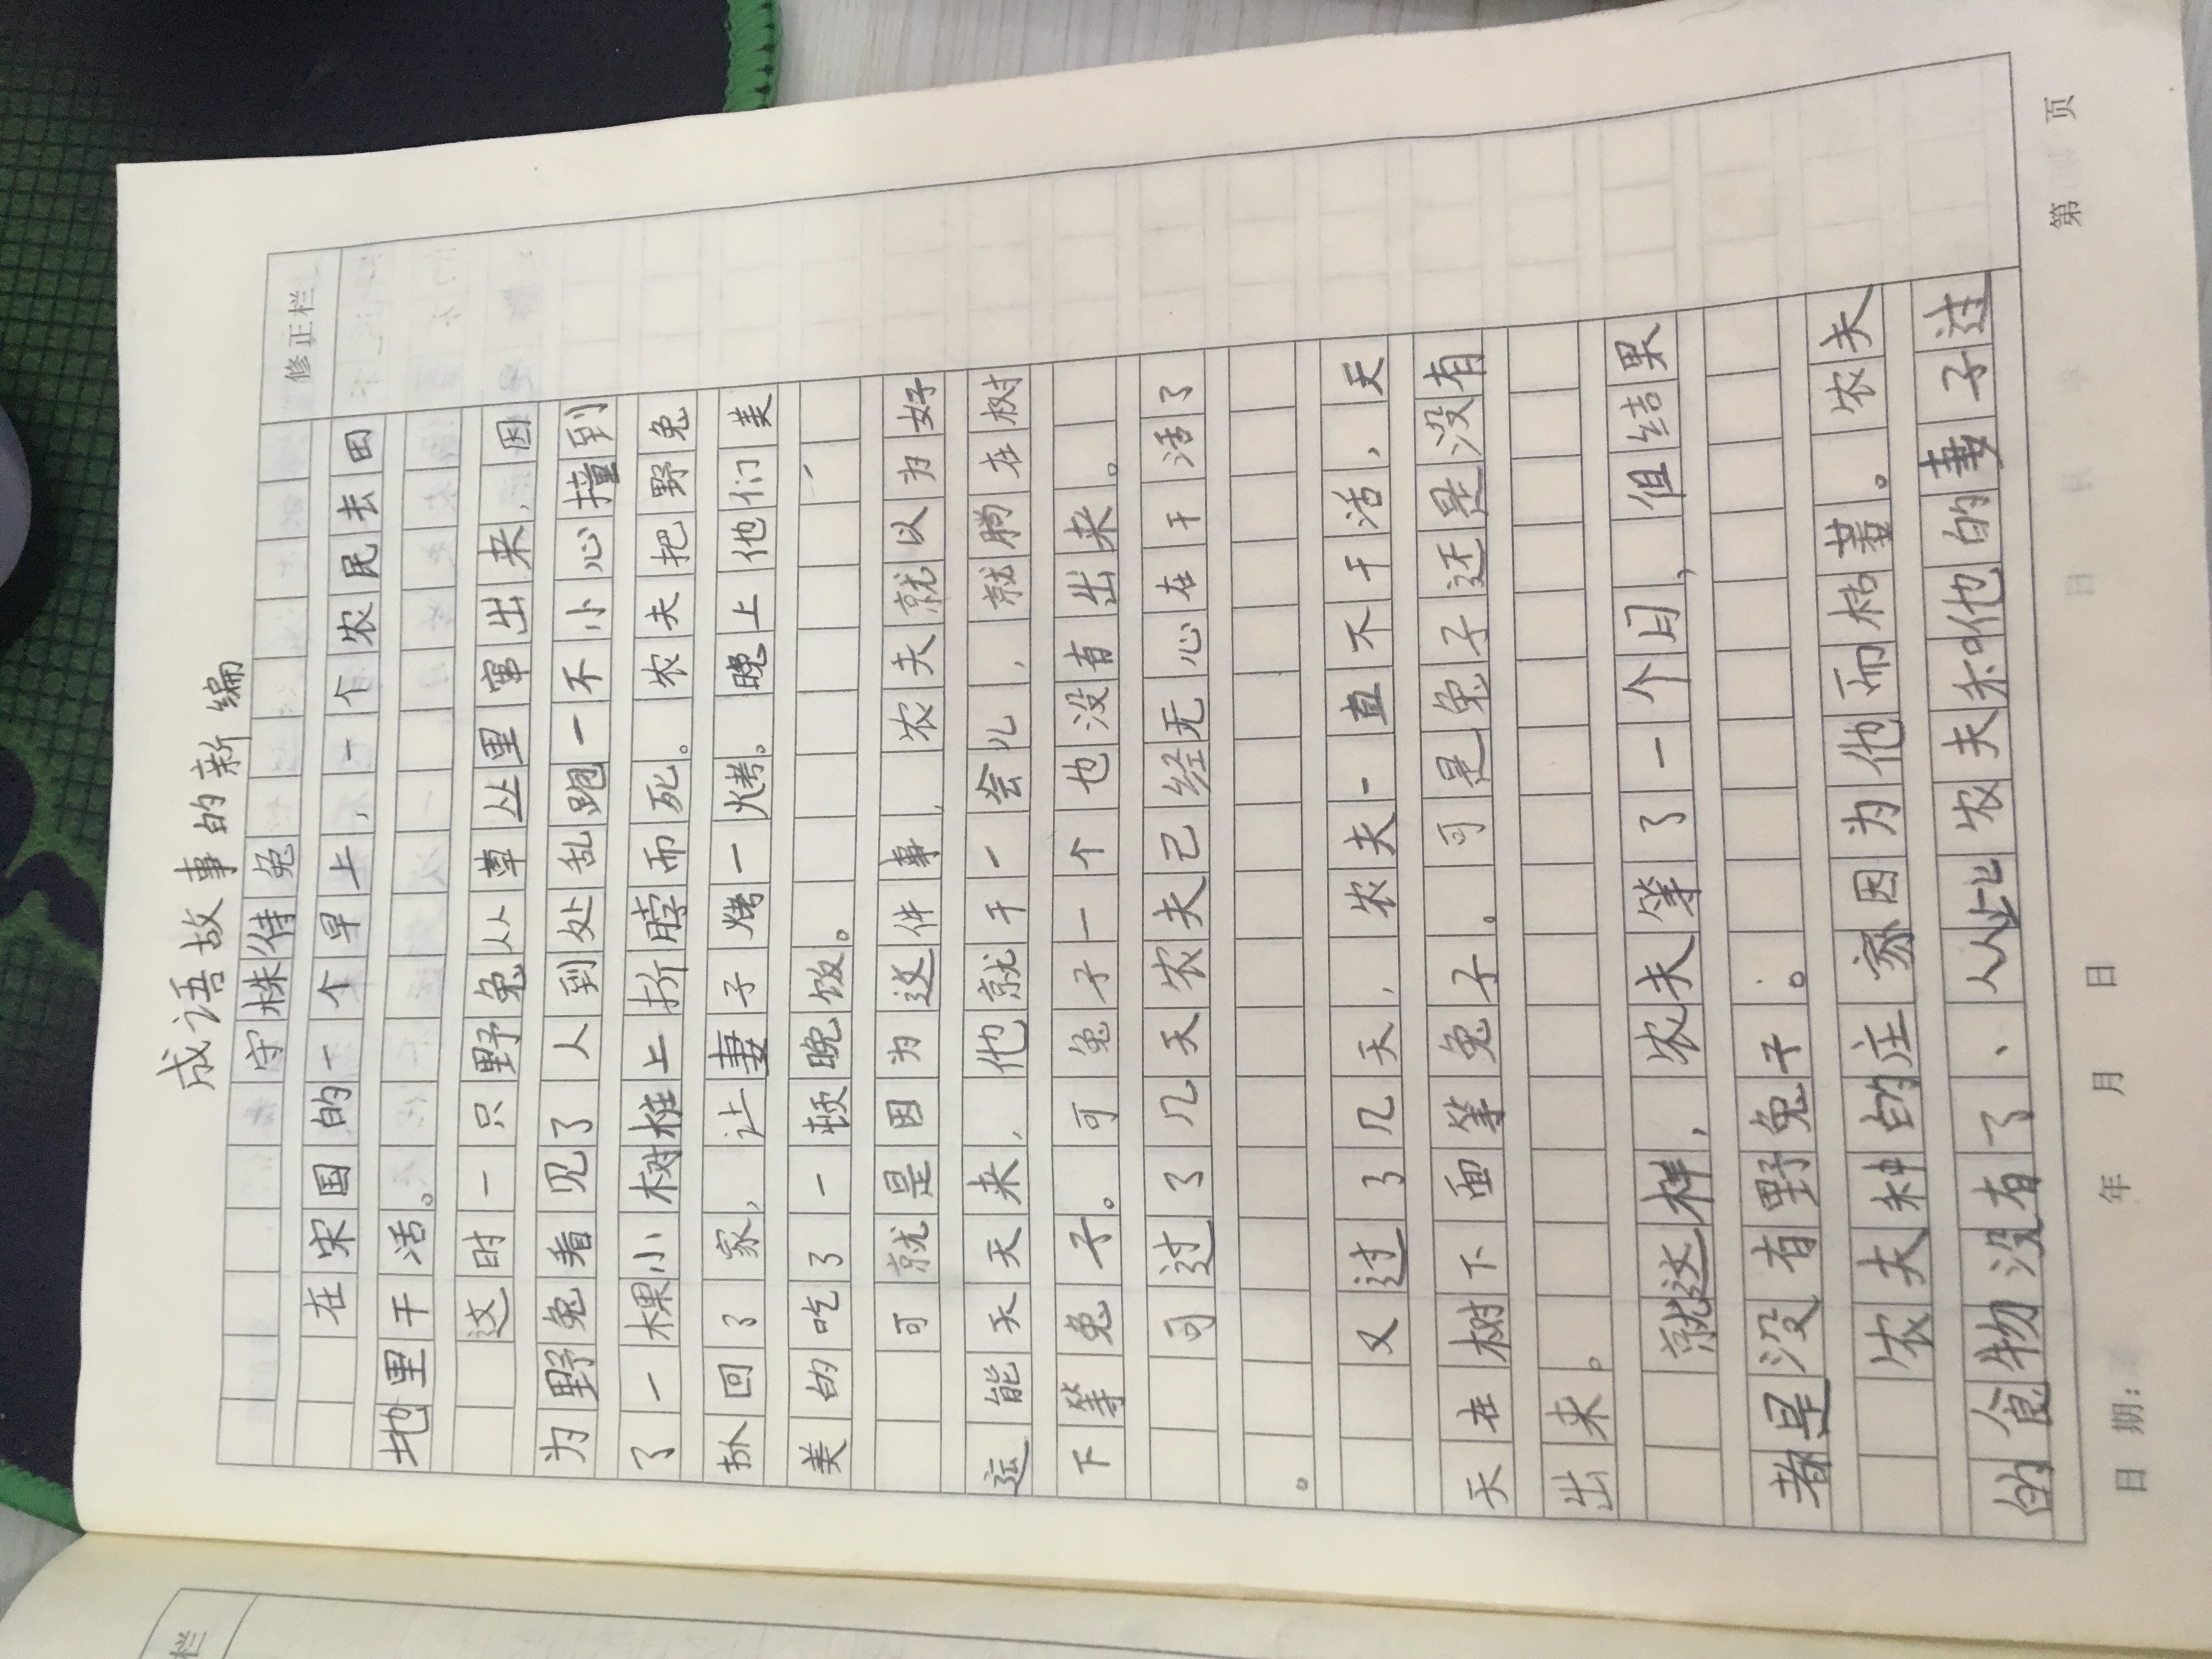 成语故事的新编
修正栏
守株待兔
在宋国的一个早上，一个农民去田
地里干活。
这时一只野兔从草丛里窜出来，因
为野兔看见了人到处乱跑一不小心撞到
了一棵小树桩上折脖而死。农夫把野兔
扒回了家，让妻子烤一烤。晚上他们美
美的吃了一顿晚饭。
可就是因为这件事，农夫就以为好
运能天天来，他就干一会儿，就躺在树
下等兔子。可兔子一个也没有出来。
可过了几天农夫已经无心在干活了
。
又过了几天，农夫一直不干活，天
天在树下面等兔子。可是兔子还是没有
出来。
就这样，农夫等了一个月，但结果
都是没有野兔子。
农夫种的庄家因为他而枯萎。农夫
的食物没有了、从此农夫和他的妻子过
日期： 年 月 日
第 页
栏